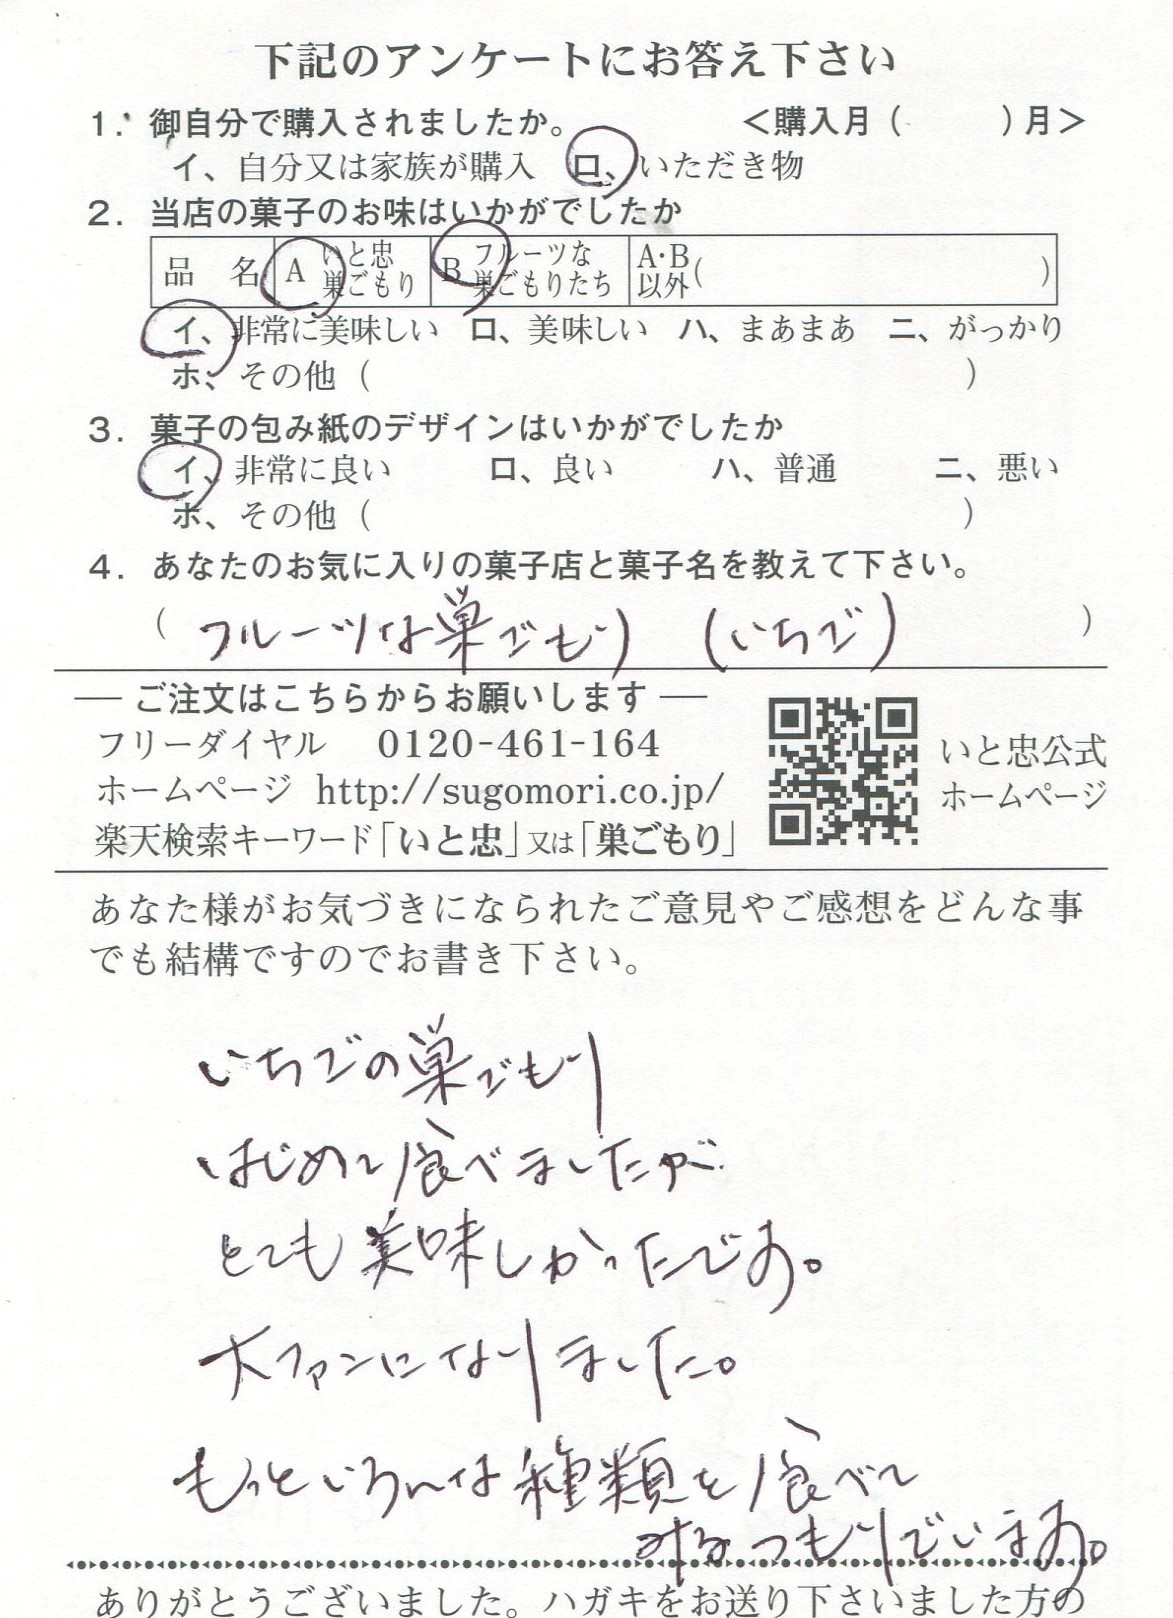 下記のアンケートにお答え下さい
1. 御自分で購入されましたか。 ＜購入月（ ）月＞
イ、自分又は家族が購入 ロ、いただき物
2. 当店の菓子のお味はいかがでしたか
品 名 A いと忠巣ごもり B フルーツな巣ごもりたち A・B以外( )
イ、非常に美味しい ロ、美味しい ハ、まあまあ ニ、がっかり
ホ、その他（ ）
3. 菓子の包み紙のデザインはいかがでしたか
イ、非常に良い ロ、良い ハ、普通 ニ、悪い
ホ、その他（ ）
4. あなたのお気に入りの菓子店と菓子名を教えて下さい。
（ フルーツな巣ごもり （いちご） ）
― ご注文はこちらからお願いします ―
フリーダイヤル 0120-461-164
ホームページ http://sugomori.co.jp/
楽天検索キーワード「いと忠」又は「巣ごもり」
いと忠公式
ホームページ
あなた様がお気づきになられたご意見やご感想をどんな事
でも結構ですのでお書き下さい。
いちごの巣ごもり
はじめて食べましたが
とても美味しかったです。
大ファンになりました。
もっといろんな種類を食べて
みるつもりでいます。
ありがとうございました。ハガキをお送り下さいました方の